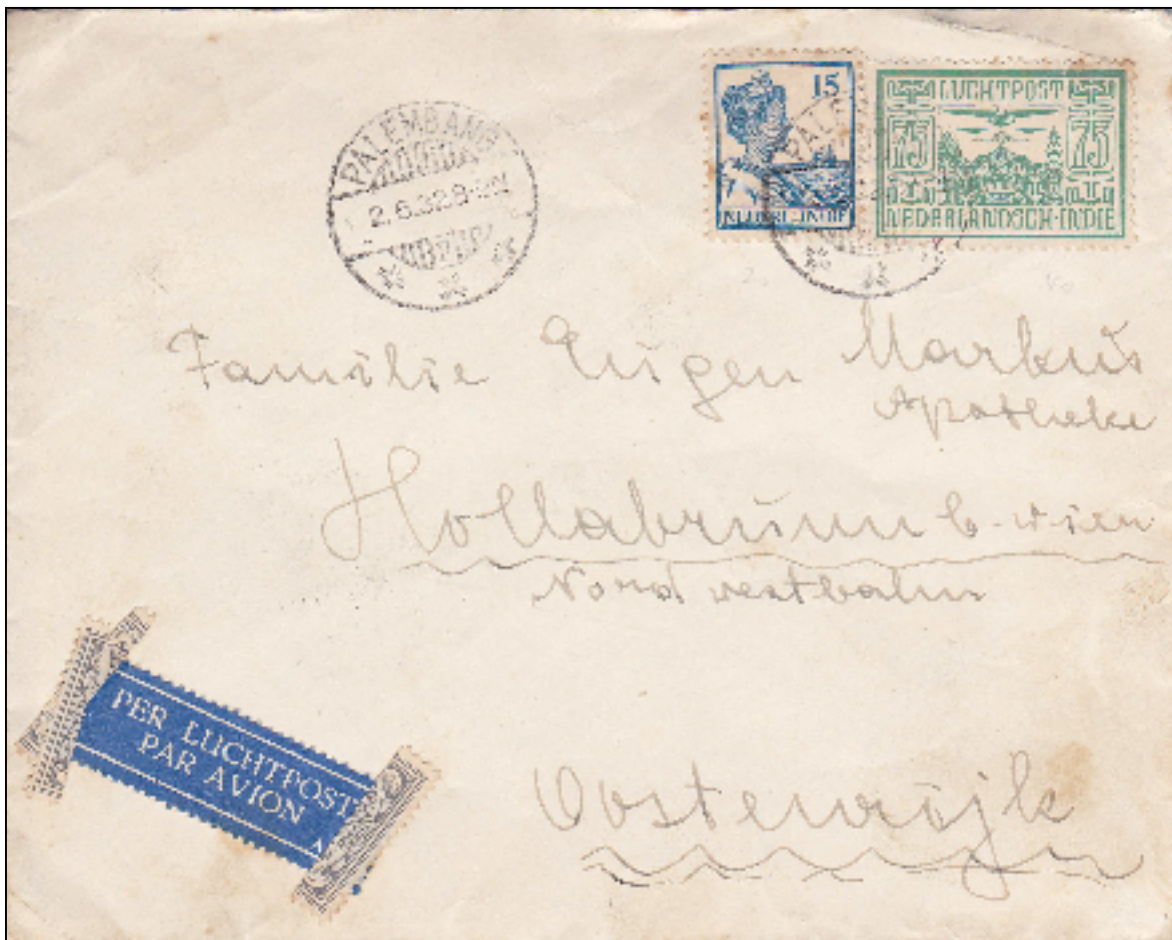 PALEMBANG
2.6.32.8-9N
15
NEDERL-INDIE
LUCHTPOST
75 75
NEDERLANDSCH-INDIE
Familie Eugen Markus
Apotheke
Hollabrunn b. Wien
Nordwestbahn
PER LUCHTPOST
PAR AVION
Oostenrijk